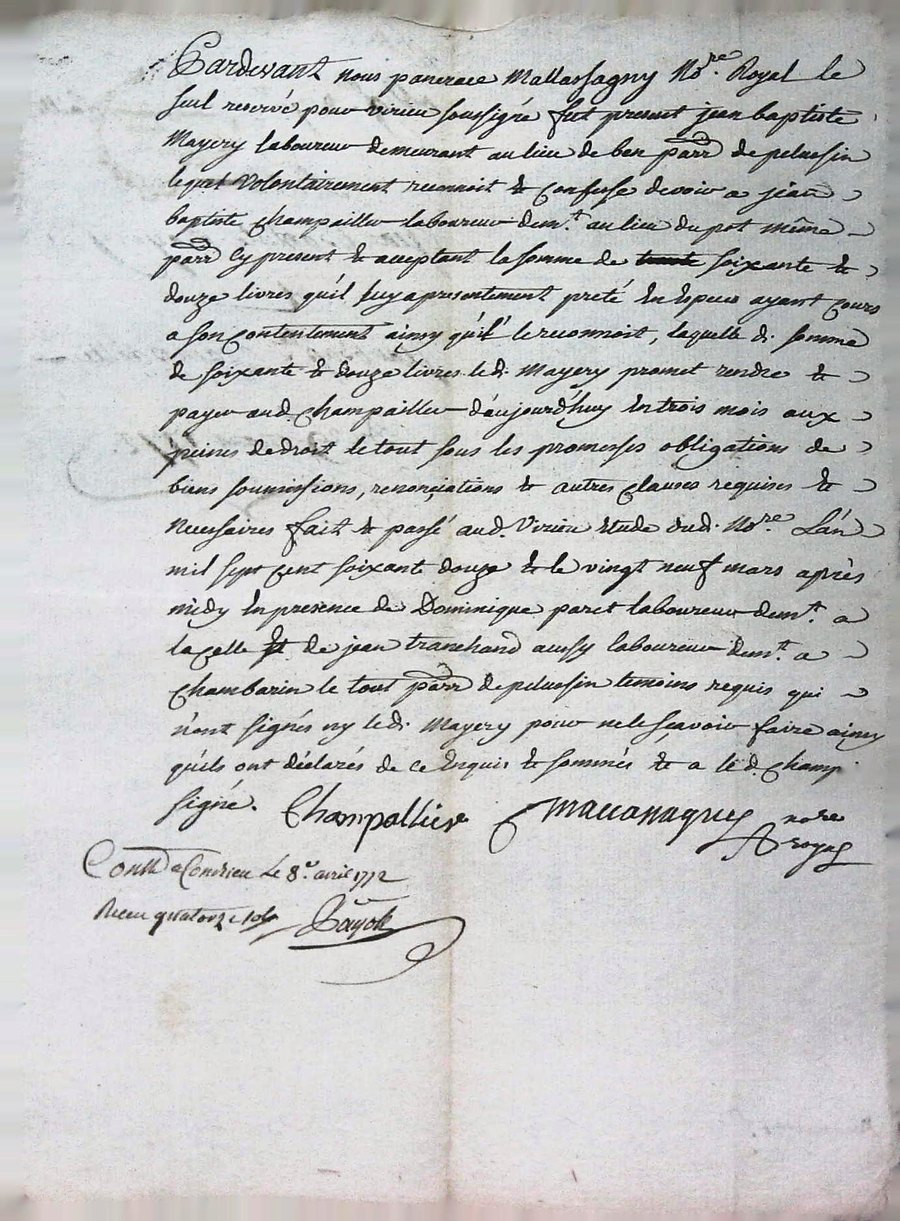 Pardevant nous pancrace Mallassagny No.re Royal le
seul reservé pour virieu soussigné fut present jean baptiste
Mayery laboureur demeurant au lieu de ban parr de pelussin
lequel volontairement reconnoit & confesse devoir a jean
baptiste champailler laboureur dem.t au lieu du pot même
parr cy present & aceptant la somme de soixante &
douze livres qu'il luy a presentement preté en especes ayant cours
a son contentement ainsy qu'il le reconnoit, laquelle d. somme
de soixante & douze livres le d. Mayery promet rendre &
payer aud. champailler d'aujourd'huy en trois mois aux
peines de droit le tout sous les promesses obligations de
biens soumissions, renonçiations & autres clauses requises &
necessaires fait & passé aud. virieu etude dud. No.re L'an
mil sept cent soixante douze & le vingt neuf mars après
midy en presence de Dominique paret laboureur dem.t a
la celle & de jean tranchand aussy laboureur dem.t a
Chambarin le tout parr de pelussin temoins requis qui
n'ont signés ny le d. Mayery pour ne le sçavoir faire ainsy
qu'ils ont déclarés de ce enquis & sommés & a le d. champ
signé. Champallier Mallassagny no.re
royal
Con.llé a Condrieu Le 8.e avril 1772
Receu quatorze sols Bayok